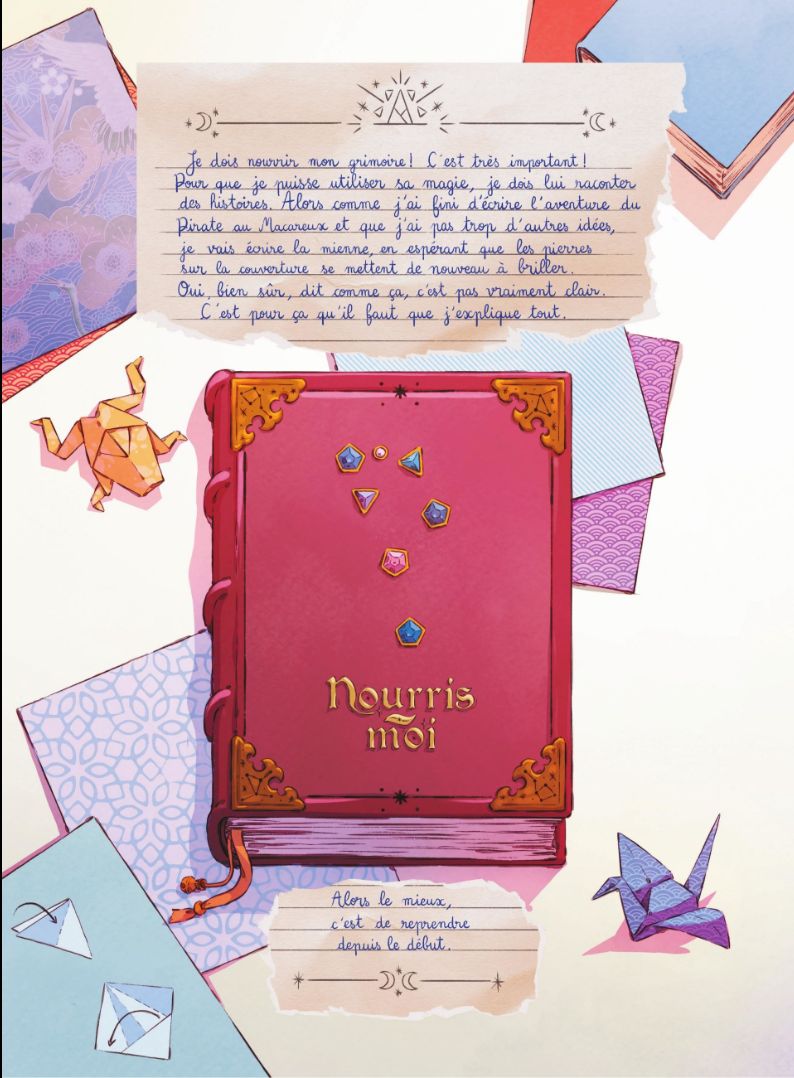 Je dois nourrir mon grimoire! C'est très important!
Pour que je puisse utiliser sa magie, je dois lui raconter
des histoires. Alors comme j'ai fini d'écrire l'aventure du
Pirate au Macareux et que j'ai pas trop d'autres idées,
je vais écrire la mienne, en espérant que les pierres
sur la couverture se mettent de nouveau à briller.
Oui, bien sûr, dit comme ça, c'est pas vraiment clair.
C'est pour ça qu'il faut que j'explique tout.
Nourris
moi
Alors le mieux,
c'est de reprendre
depuis le début.